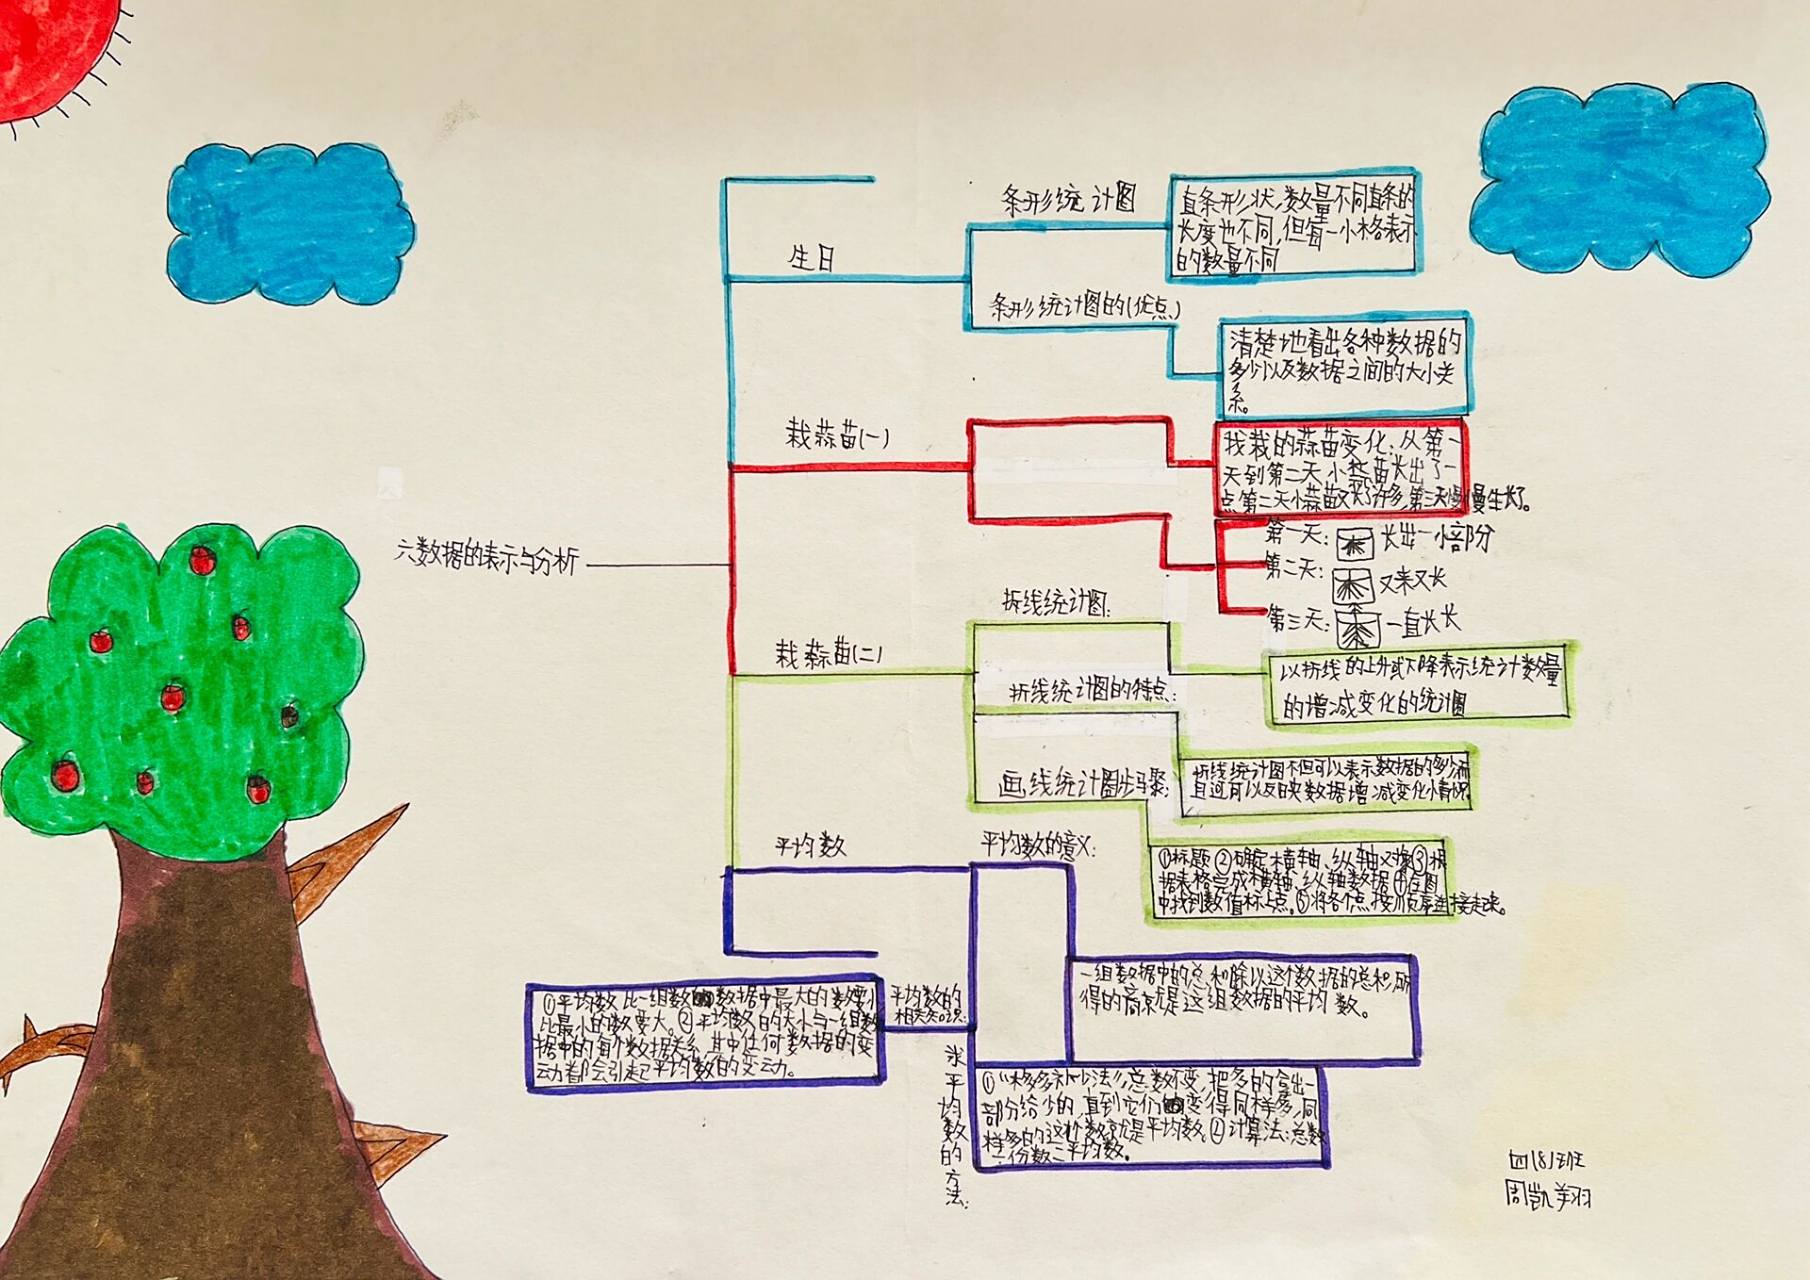 六数据的表示与分析
生日
条形统计图
直条形状,数量不同直条的
长度也不同,但每一小格表示
的数量不同
条形统计图的(优点)
清楚地看出各种数据的
多少以及数据之间的大小关
系。
栽蒜苗(一)
我栽的蒜苗变化:从第一
天到第二天小蒜苗长出了一
点第二天小蒜苗又长了许多,第三天慢慢生长了。
第一天: 长出一小部分
第二天: 又来又长
第三天: 一直长长
栽蒜苗(二)
折线统计图:
以折线的上升或下降表示统计数量
的增减变化的统计图
折线统计图的特点:
折线统计图不但可以表示数据的多少而
且还可以反映数据增减变化小情况
画线统计图步骤:
①标题②确定横轴、纵轴③根
据表格完成横轴、纵轴数据④在图
中找到数值标上点。⑤将各个点按顺序连接起来。
平均数
平均数的意义:
一组数据中的总和除以这个数据的总和,所
得的商就是这组数据的平均数。
平均数的
相关知识:
①平均数比一组数数据中最大的数要小
比最小的数要大。②平均数的大小与一组数
据中的每个数据关系,其中任何数据的变
动都会引起平均数的变动。
求平均数的方法:
①“移多补少法”总数不变,把多的拿出一
部分给少的,直到它们变得同样多,同
样多的这个数就是平均数。②计算法:总数
÷份数=平均数。
四(8)班
周凯翔